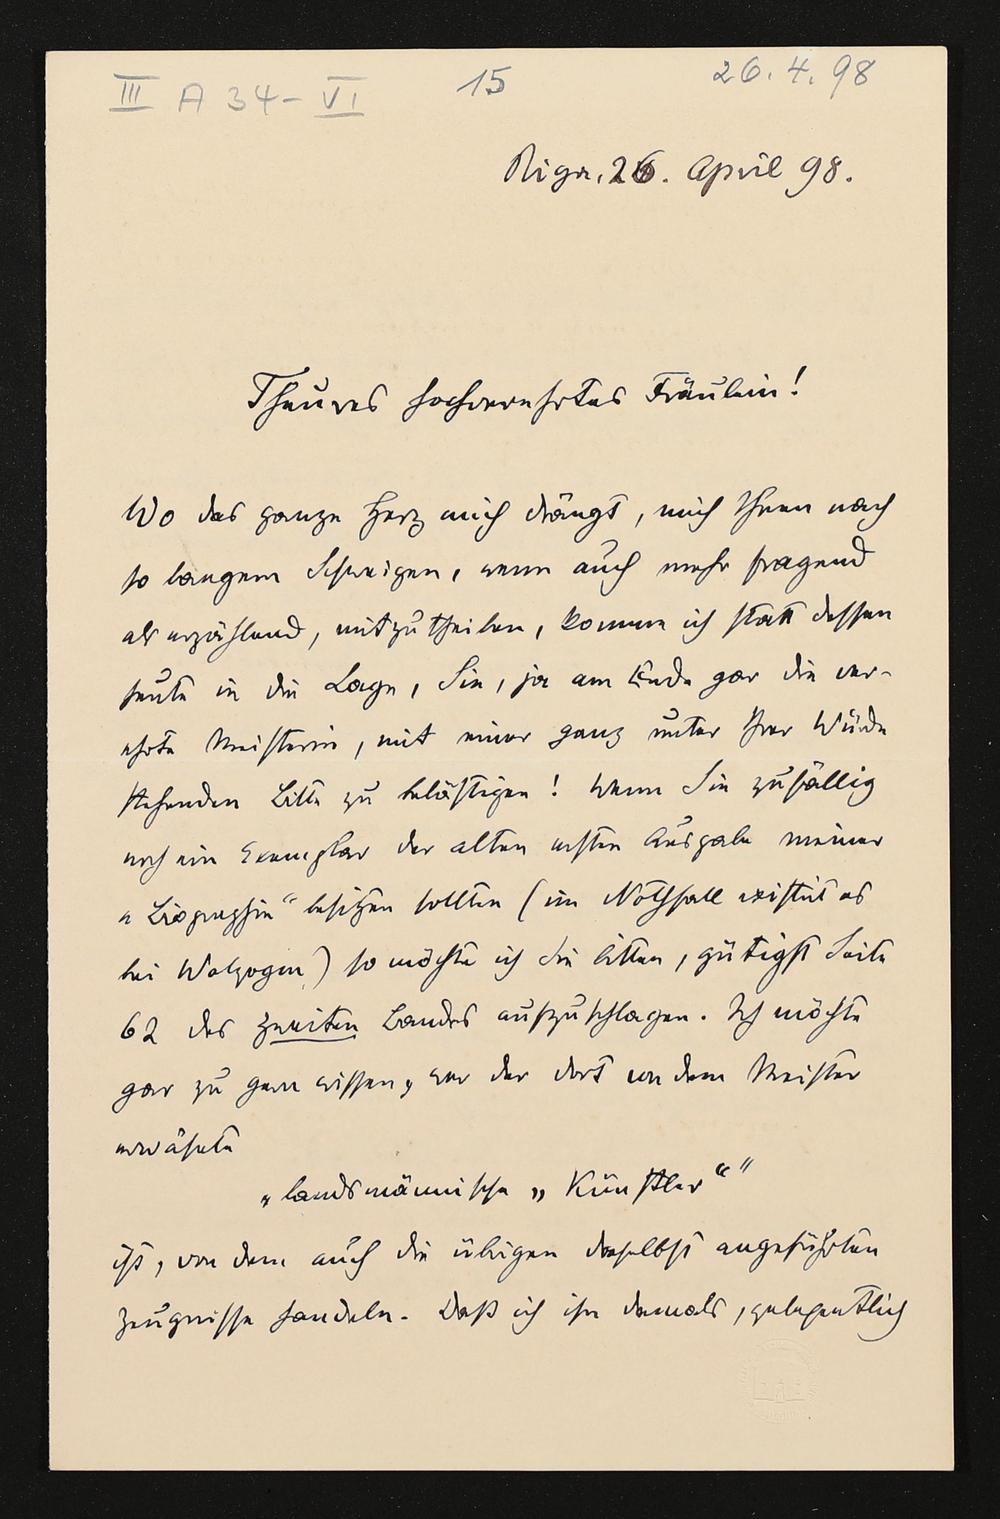 III A 34-VI 15 26.4.98
Riga, 26. April 98.
Theures hochverehrtes Fräulein!
Wo das ganze Herz mich drängt, mich Ihnen nach
so langem Schweigen, wenn auch mehr fragend
als erzählend, mitzutheilen, komme ich statt dessen
heute in die Lage, Sie, ja am Ende gar die ver-
ehrte Meisterin, mit einer ganz unter Ihrer Würde
stehenden Bitte zu belästigen! Wenn Sie zufällig
noch ein Exemplar der alten ersten Ausgabe meiner
„Biographie“ besitzen sollten (im Nothfall existirt es
bei Wolzogen) so möchte ich Sie bitten, gütigst Seite
62 des zweiten Bandes aufzuschlagen. Ich möchte
gar zu gern wissen, wer der dort von dem Meister
erwähnte
„landsmännische „Künstler“ “
ist, von dem auch die übrigen daselbst angeführten
Zeugnisse handeln. Daß ich ihn damals, gelegentlich